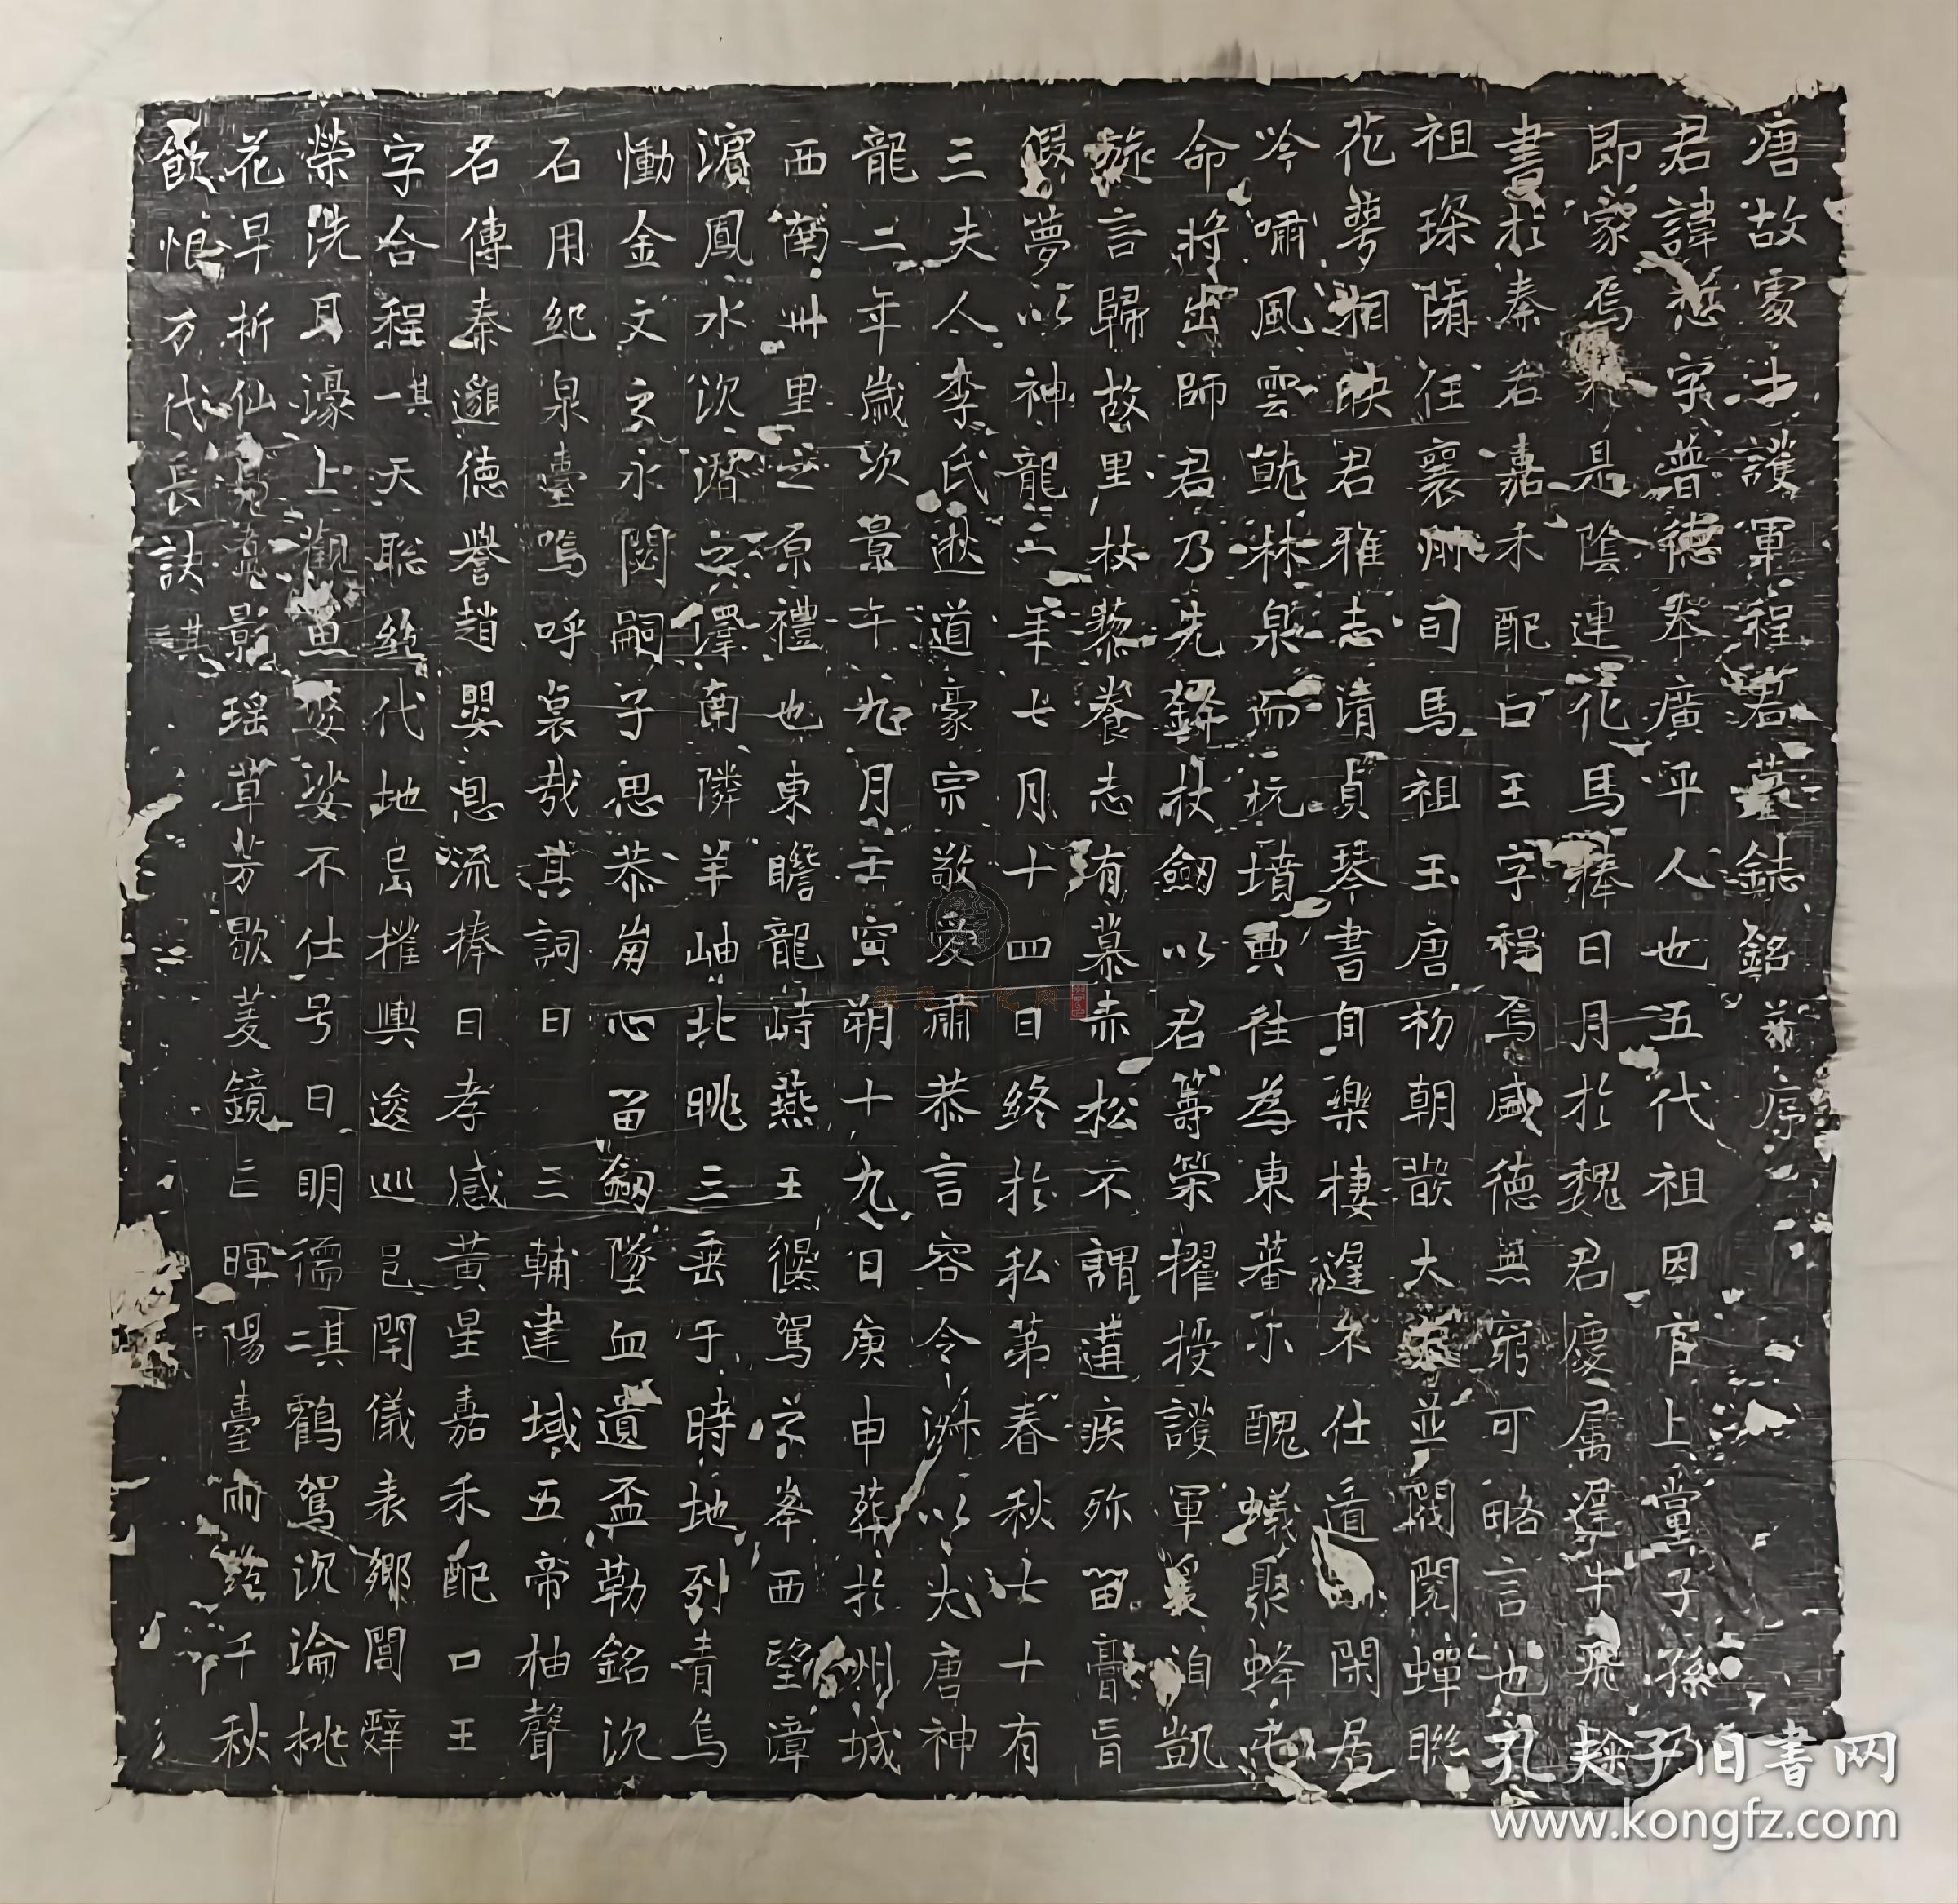 唐故處士護軍程君墓誌銘并序
君諱悊字普德奉廣平人也五代祖因官上黨子孫
即家焉是陰連化馬捧日月於魏君慶屬遲牛飛
書於秦君嘉禾配口王字程焉盛德無窮可略言也
祖琛隋任襄州司馬祖王唐初朝散大夫並閥閱蟬聯
花萼相映君雅志清貞琴書自樂棲遲不仕道閑居
吟嘯風雲執林泉而玩墳典往為東蕃小醜蟻聚蜂屯
命將出師君乃先鋒杖劒以君籌策擢授護軍爰洎凱
旋言歸故里杖藜養志有慕赤松不謂遘疾弥留膏肓
假夢以神龍二年七月十四日終於私第春秋七十有
三夫人李氏逖道豪宗敬愛肅恭言容令淋以大唐神
龍二年歲次景午九月壬寅朔十九日庚申葬於州城
西南卅里之原禮也東瞻龍峙燕王偃駕岑峯西望漳
濵鳳水次潛之澤南隣羊岫北眺三垂于時地列青烏
慟金文之永閟嗣子思恭崩心留劒墜血遺盃勒銘沉
石用紀泉臺嗚呼哀哉其詞曰　三輔建域五帝柚聲
名傳秦邈德譽趙嬰息流捧日孝感黃星嘉禾配口王
字合程其一天聡絕代地岳摧輿逡巡邑閈儀表鄉閭辤
榮洗耳濠上觀魚婆娑不仕号曰明儒其二鶴駕沉淪桃
花早折仙鳧真影瑤草芳歇菱鏡亡暉陽臺雨絕千秋
飲恨万代長訣其三
孔夫子旧书网
www.kongfz.com